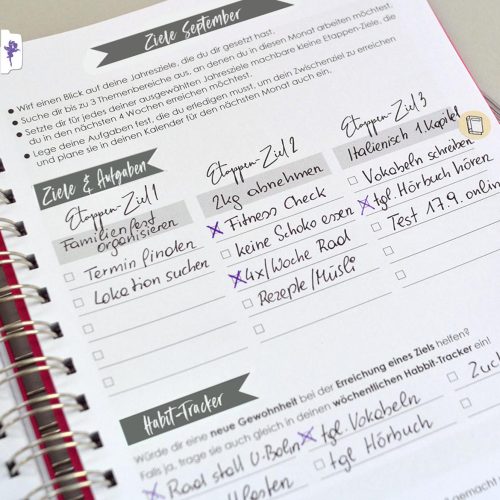 Ziele September
Wirf einen Blick auf deine Jahresziele, die du dir gesetzt hast.
Suche dir bis zu 3 Themenbereiche aus, an denen du in diesem Monat arbeiten möchtest.
Setzte dir für jedes deiner ausgewählten Jahresziele machbare kleine Etappen-Ziele, die
du in den nächsten 4 Wochen erreichen möchtest.
Lege deine Aufgaben fest, die du erledigen musst, um dein Zwischenziel zu erreichen
und plane sie in deinen Kalender für den nächsten Monat auch ein.
Ziele & Aufgaben
Etappen-Ziel 1
Familienfest
organisieren
Termin finden
Lokation suchen
Etappen-Ziel 2
2kg abnehmen
Fitness Check
keine Schoko essen
4x/Woche Rad
Rezepte/Müsli
Etappen-Ziel 3
Italienisch 1 Kapitel
Vokabeln schreiben
tgl. Hörbuch hören
Test 17.9. online
Habit-Tracker
Würde dir eine neue Gewohnheit bei der Erreichung eines Ziels helfen?
Falls ja, trage sie auch gleich in deinen wöchentlichen Habbit-Tracker ein!
Rad statt U-Bahn
tgl. Vokabeln
tgl Hörbuch